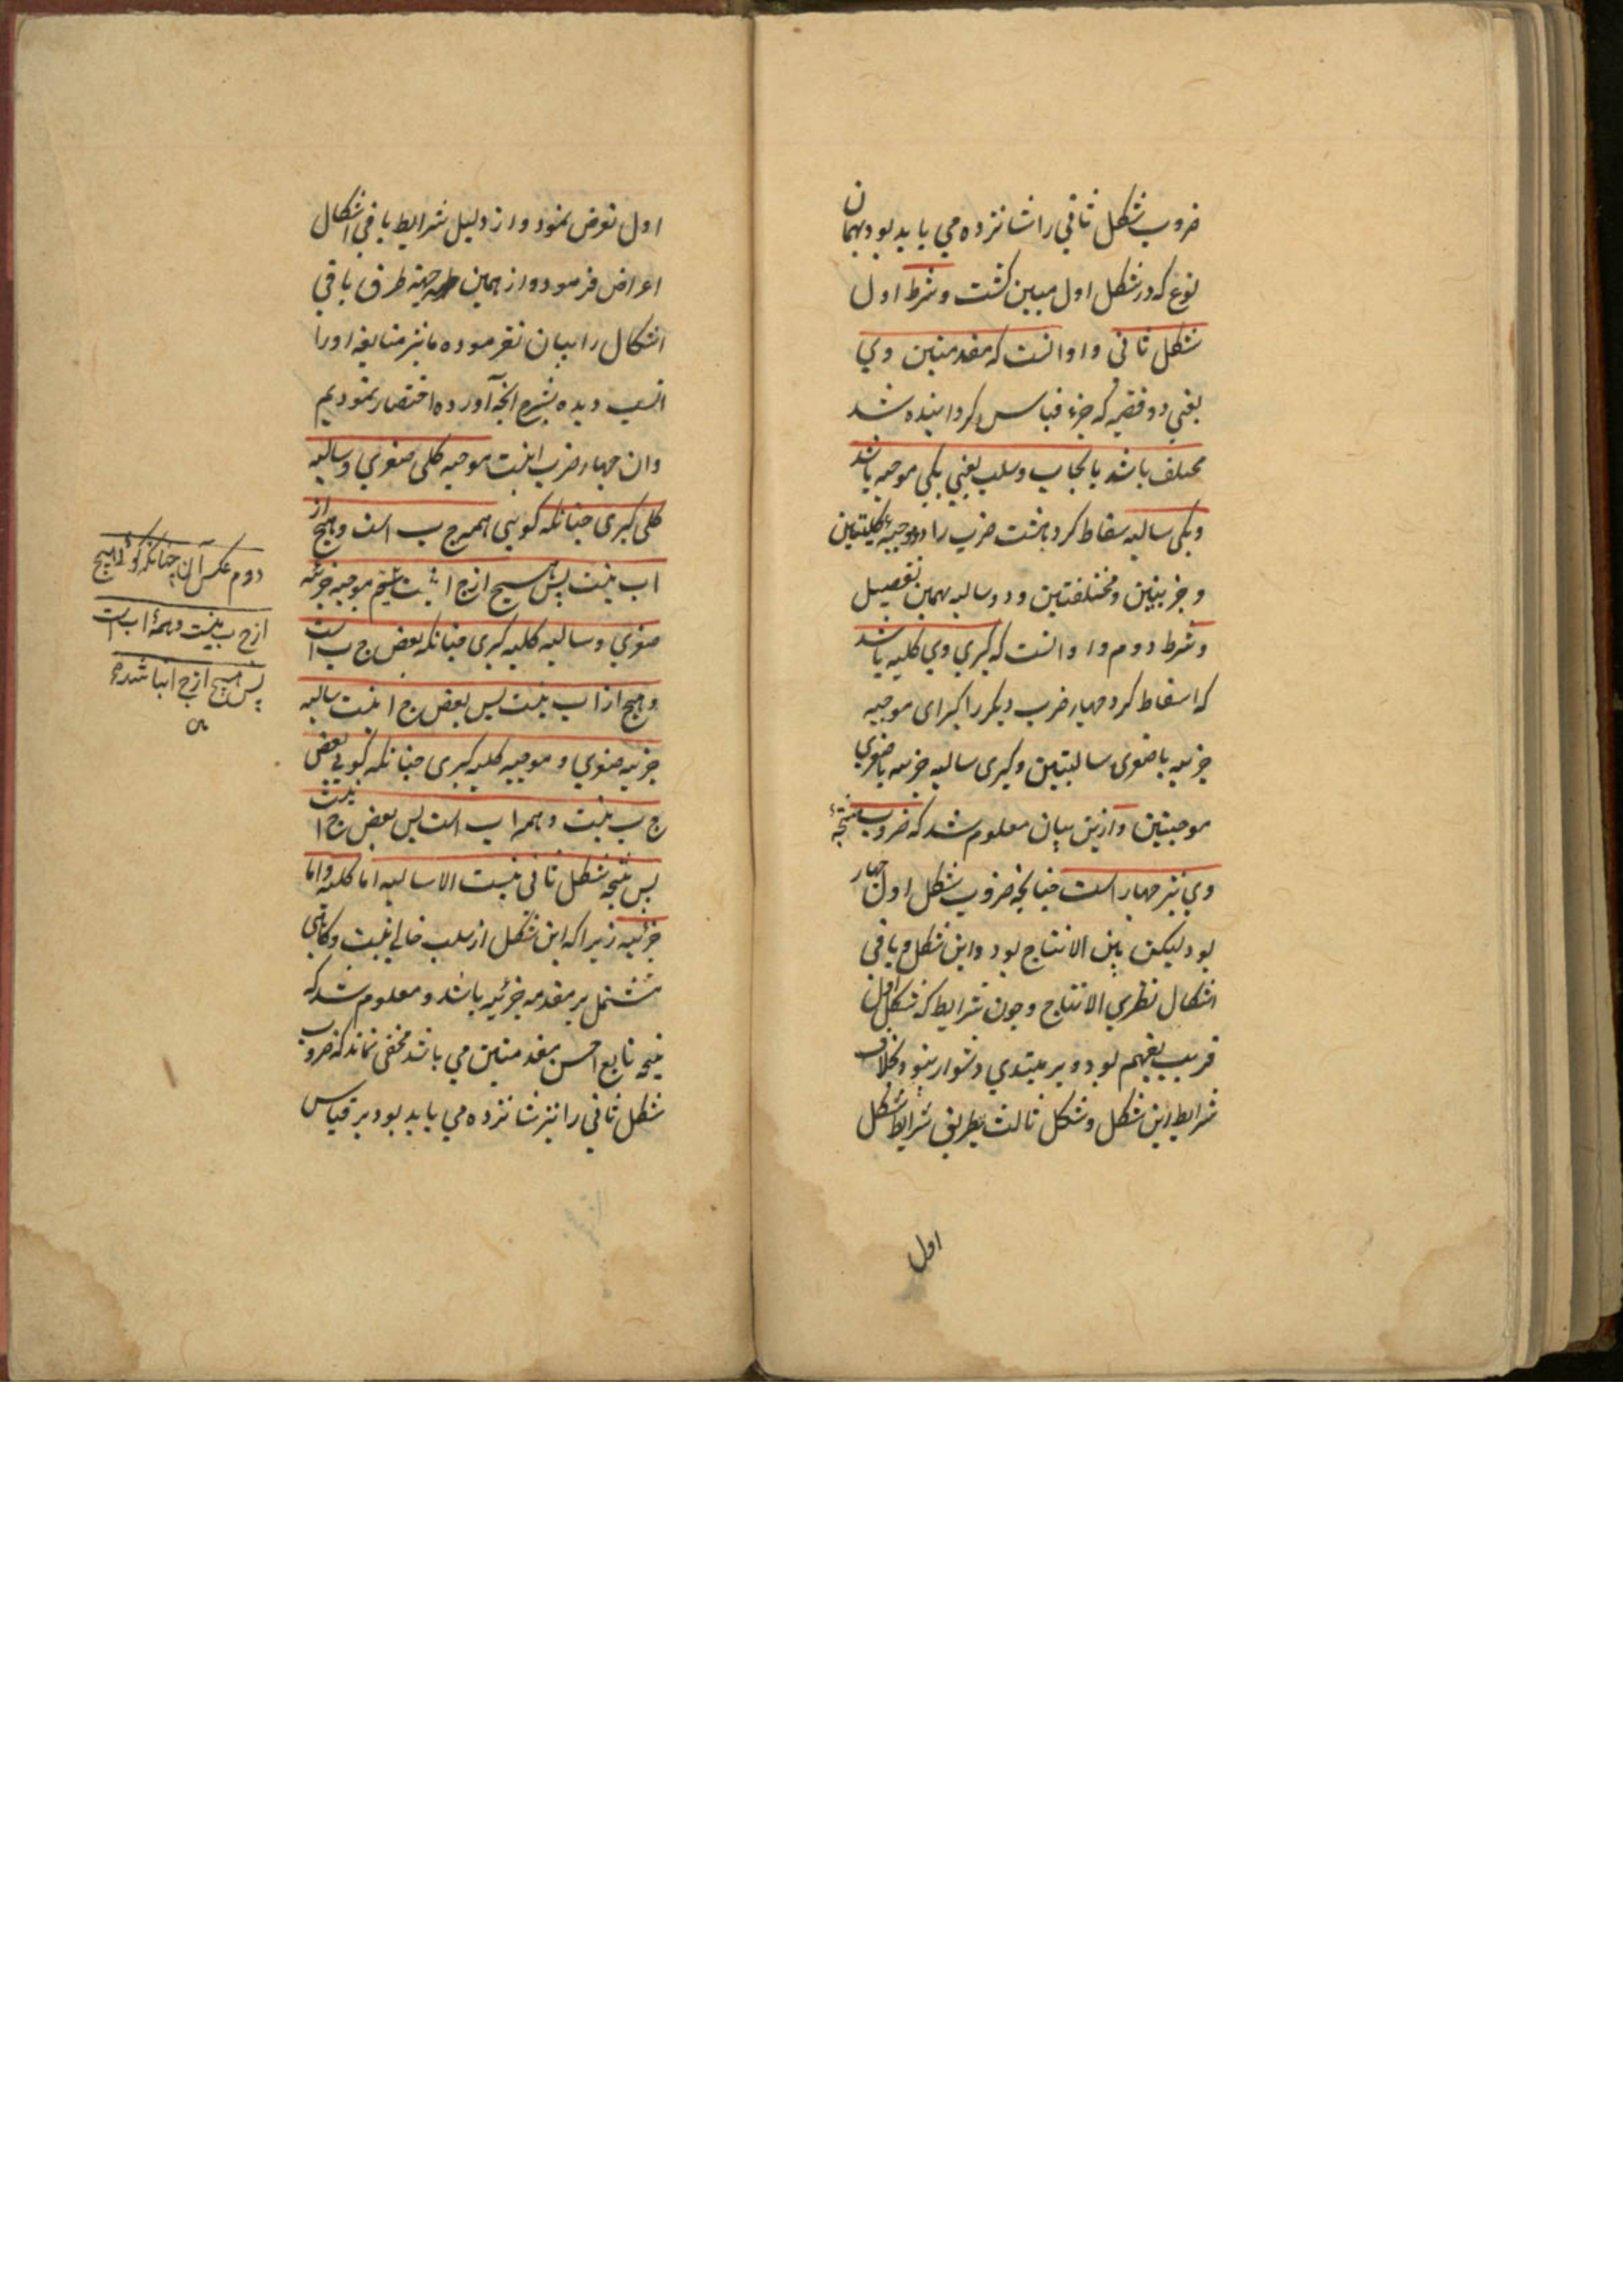 ضروب شکل ثاني را شانزده مي بايد بود بهمان
نوع که در شکل اول مبين کشت و شرط اول
شکل ثاني و او آنست که مقدمتين وي
يعني دو قضيه که جزء قياس کردانيده شد
مختلف باشد بايجاب و سلب يعني يکي موجبه باشد
و يکي سالبه سقاط کرد هشت ضرب را دو موجبهٔ کليتين
و جزئيتين و مختلفتين و دو سالبه بهمين تفصيل
و شرط دوم و او آنست که کبري وي کليه باشد
که اسقاط کرد چهار ضرب ديکر را کبرای موجبه
جزئيه با صغری سالبتين و کبری سالبه جزئيه با صغري
موجبتين و ازين بيان معلوم شد که ضروب منتجهٔ
وي نيز چهار است چنانچه ضروب شکل اول چهار
بود ليکن بين الانتاج بود و اين شکل و باقي
اشکال نظري الانتاج و چون شرايط که شکل اول
قريب بفهم بود و بر مبتدي دشوار بنود بخلاف
شرايط اين شکل و شکل ثالث بطريق شرايط شکل
اول
اول تعرض نمود و از دليل شرايط باقي اشکال
اعراض فرمود و از همين جهة طرق باقي
اشکال را بيان نفرموده ما نيز متابعه اورا
انسب ديده بشرح آنچه آورده اختصار نموديم
و ان چهار ضرب اينست موجبه کلي صغري و سالبه
کلي کبری چنانکه کويي همه ج ب است و هيچ از
ا ب نيست پس هيچ از ج ا نيست سيم موجبه جزئيه
صغري و سالبه کليه کبری چنانکه بعض ج ب است
و هيچ از ا ب نيست پس بعض ج ا نيست سالبه
جزئيه صغري و موجبه کليه کبری چنانکه کويي بعض
ج ب نيست و همه ا ب است پس بعض ج ا نيست
پس نتيجه شکل ثاني نيست الا سالبه اما کليه و اما
جزئيه زيرا که اين شکل از سلب خالي نيست و کاهي
مشتمل بر مقدمه جزئيه باشد و معلوم شد که
نتيجه تابع اخس مقدمتين مي باشد مخفي نماند که ضروب
شکل ثاني را نيز شانزده مي بايد بود بر قياس
دوم عکس آن چنانکه کوئي هيچ
از ج ب نيست و همهٔ ا ب است
پس هيچ از ج ا نباشد